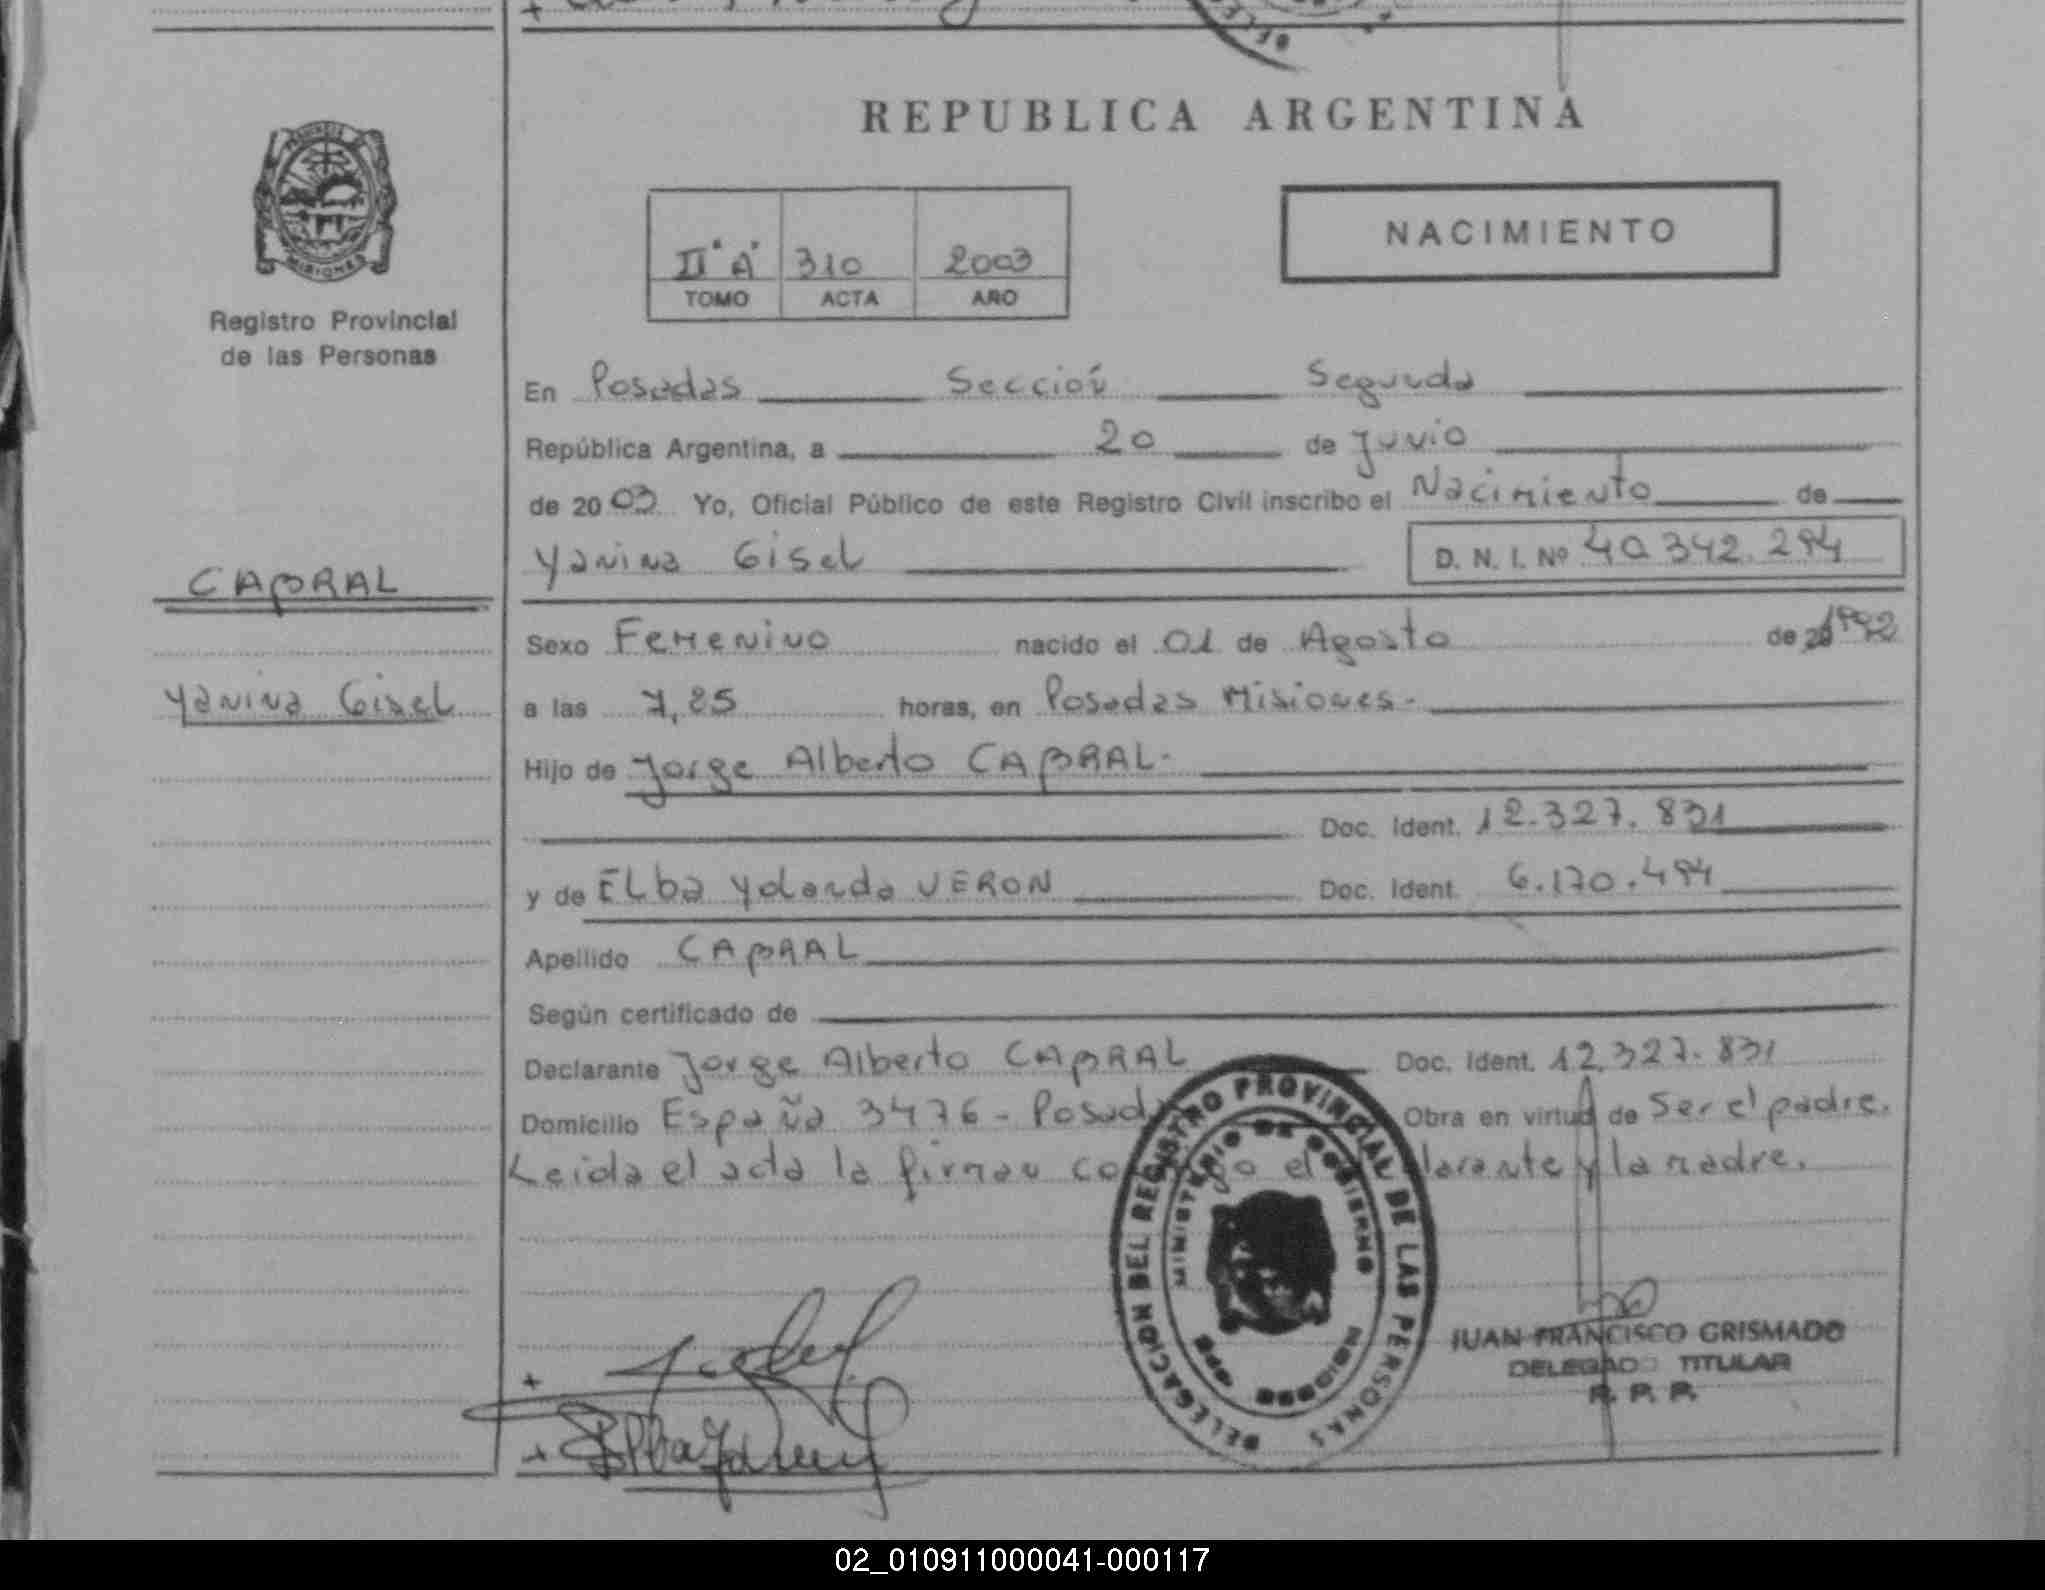 REPUBLICA ARGENTINA
MISIONES
Registro Provincial
de las Personas
NACIMIENTO
II "A" 310 2003
TOMO ACTA AÑO
En Posadas Sección Segunda
República Argentina, a 20 de Junio
de 2003 Yo, Oficial Público de este Registro Civil inscribo el Nacimiento de
Yanina Gisel D. N. I. Nº 40.342.294
CABRAL
Sexo Femenino nacido el 01 de Agosto de 1992
Yanina Gisel
a las 7,25 horas, en Posadas Misiones.-
Hijo de Jorge Alberto CABRAL-
Doc. Ident. 12.327.831
y de ELba Yolanda VERON Doc. Ident. 6.170.494
Apellido CABRAL
Según certificado de
Declarante Jorge Alberto CABRAL Doc. Ident. 12.327.831
Domicilio España 3476 - Posadas Obra en virtud de Ser el padre.
Leida el acta la firman conmigo el declarante y la madre.
DELEGACION DEL REGISTRO PROVINCIAL DE LAS PERSONAS
MINISTERIO DE GOBIERNO
MISIONES
JUAN FRANCISCO GRISMADO
DELEGADO TITULAR
R. P. P.
02_010911000041-000117